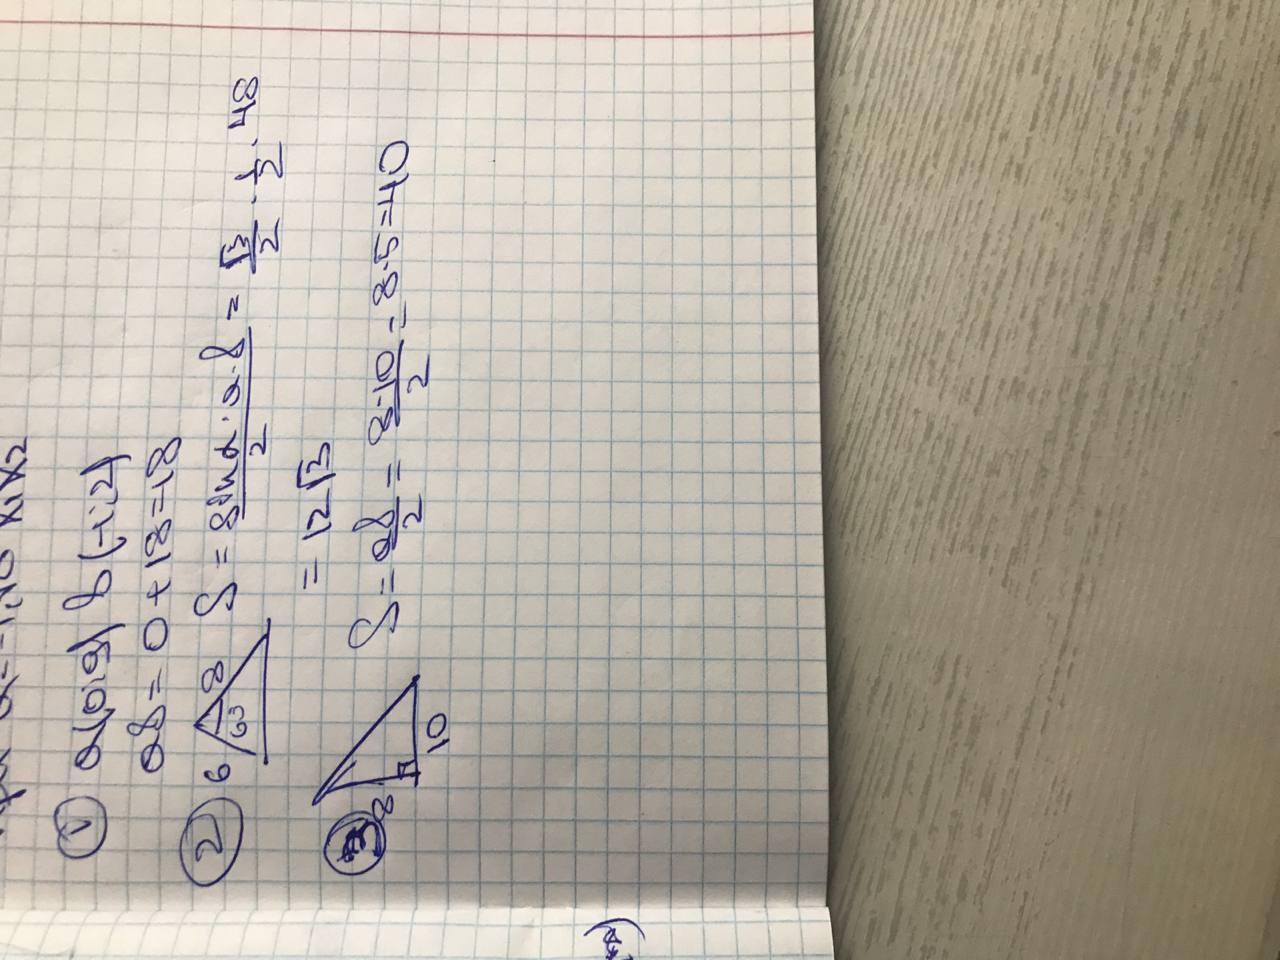 ① a(0;9) b(-1;2)
ab = 0 + 18 = 18
② 6 8 S = sinα·a·b/2 = √3/2 · 1/2 · 48
= 12√3
③ 8 10 S = ab/2 = 8·10/2 = 8·5 = 40